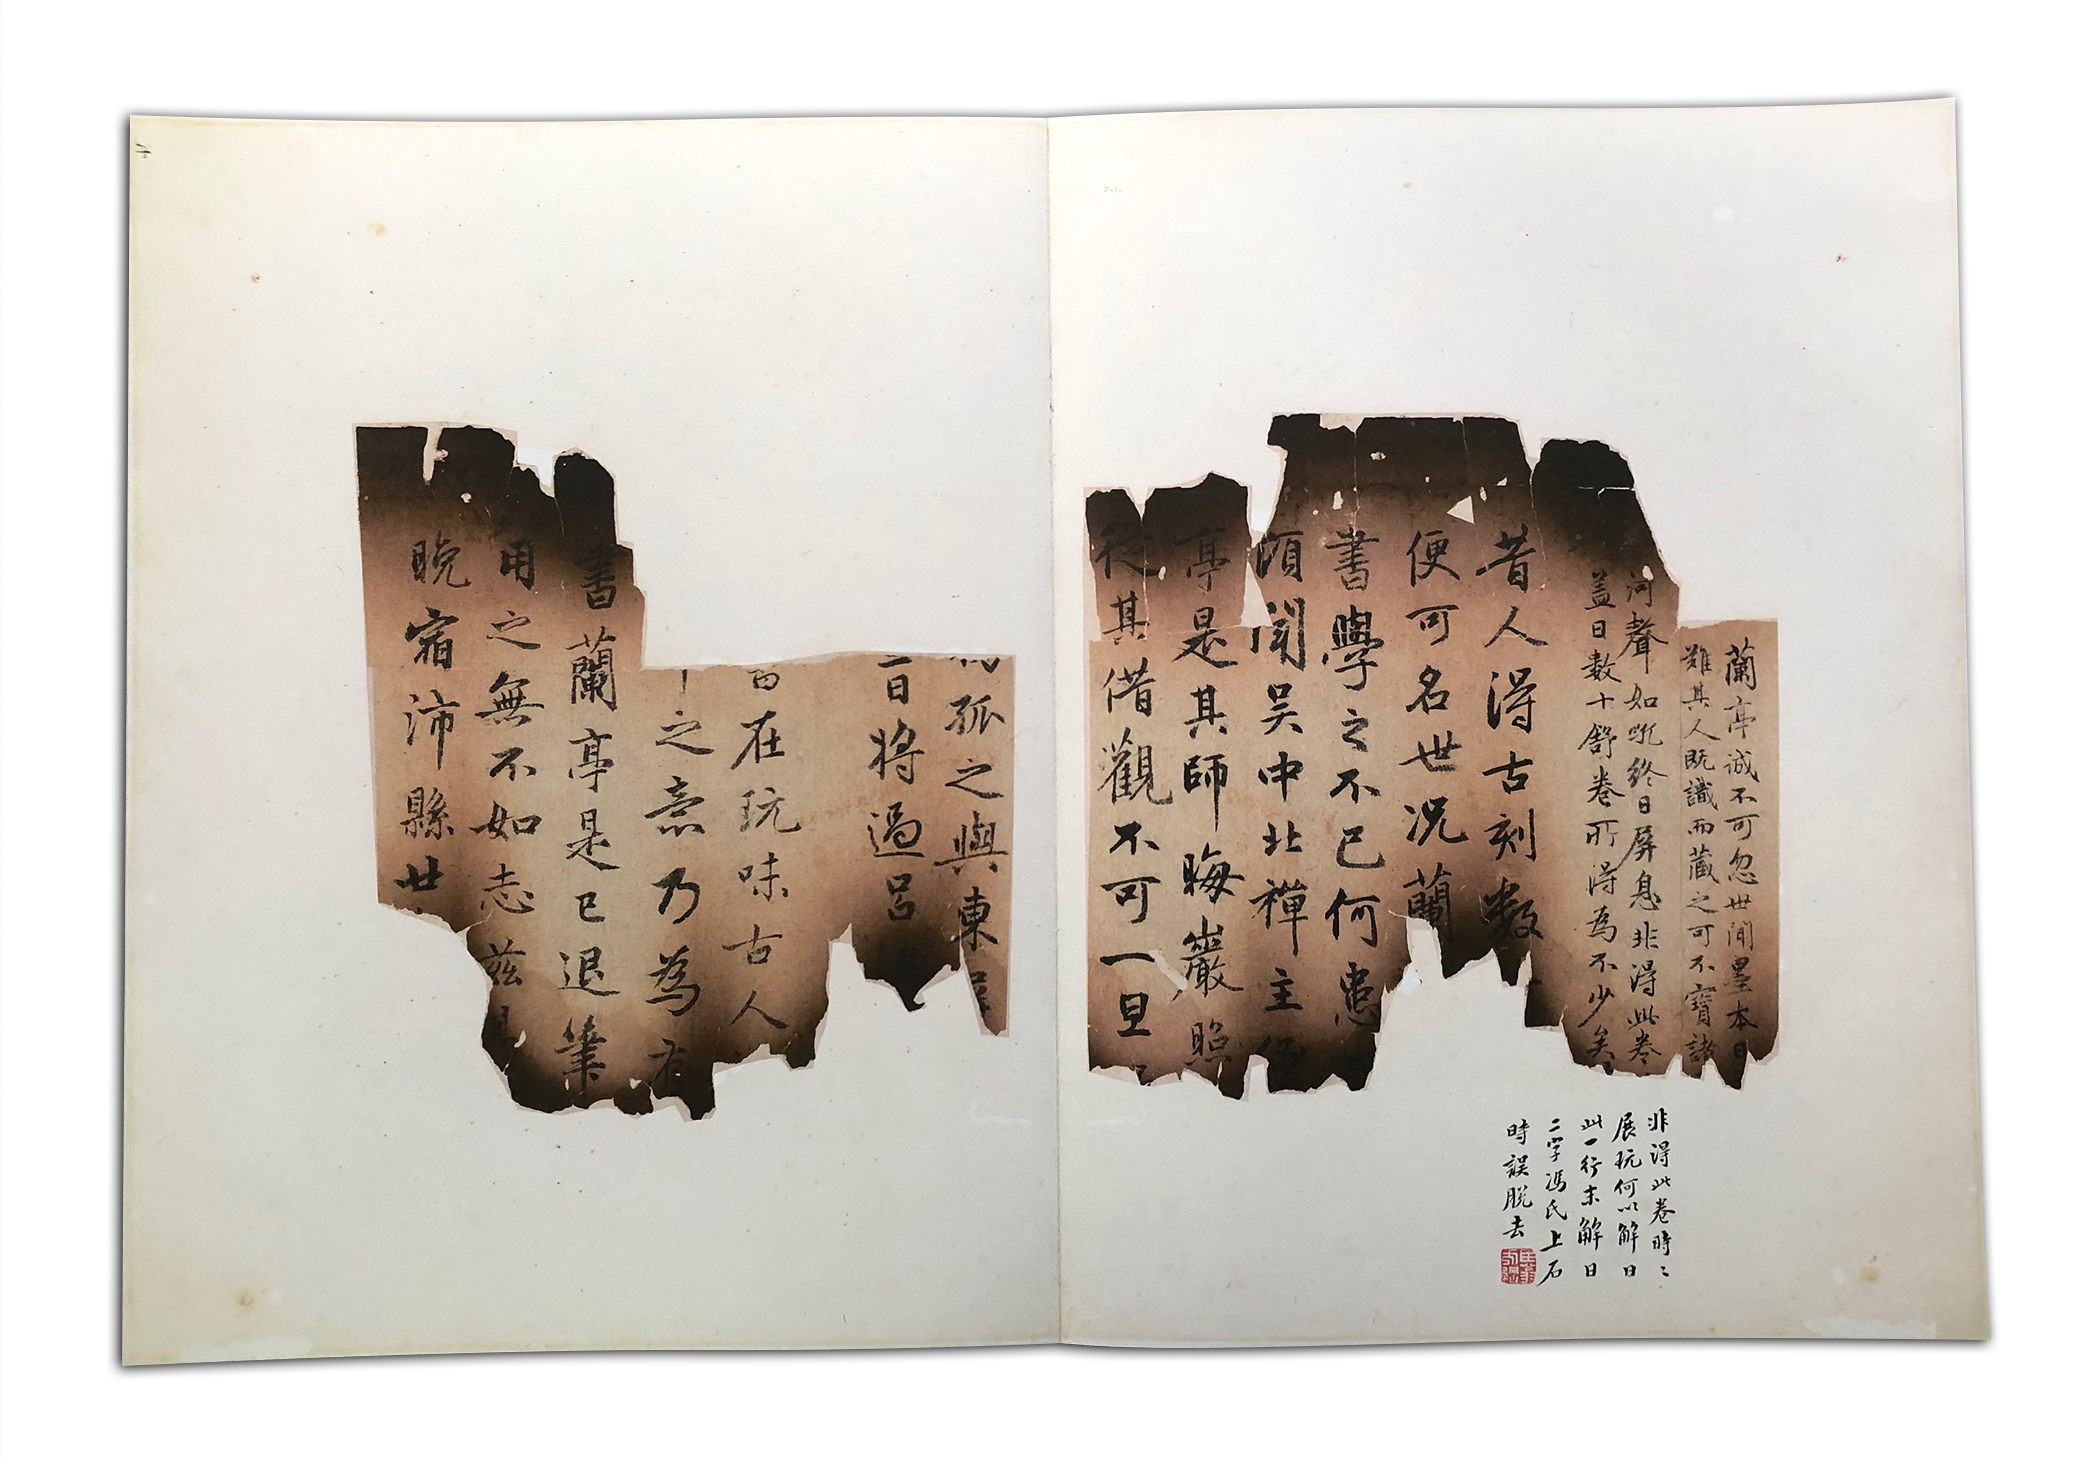 蘭亭誠不可忽世間墨本日
難其人既識而藏之可不寶諸
河聲如吼終日屏息非得此卷
蓋日數十舒卷所得為不少矣
昔人得古刻數
便可名世況蘭
書學之不已何患
頃聞吳中北禪主僧
亭是其師晦巖照
從其借觀不可一旦
孤之與東屏
日將過呂
在玩味古人
之意乃為有
書蘭亭是已退筆
用之無不如志茲
晚宿沛縣廿
非得此卷時〻
展玩何以解日
此一行末解日
二字馮氏上石
時誤脫去